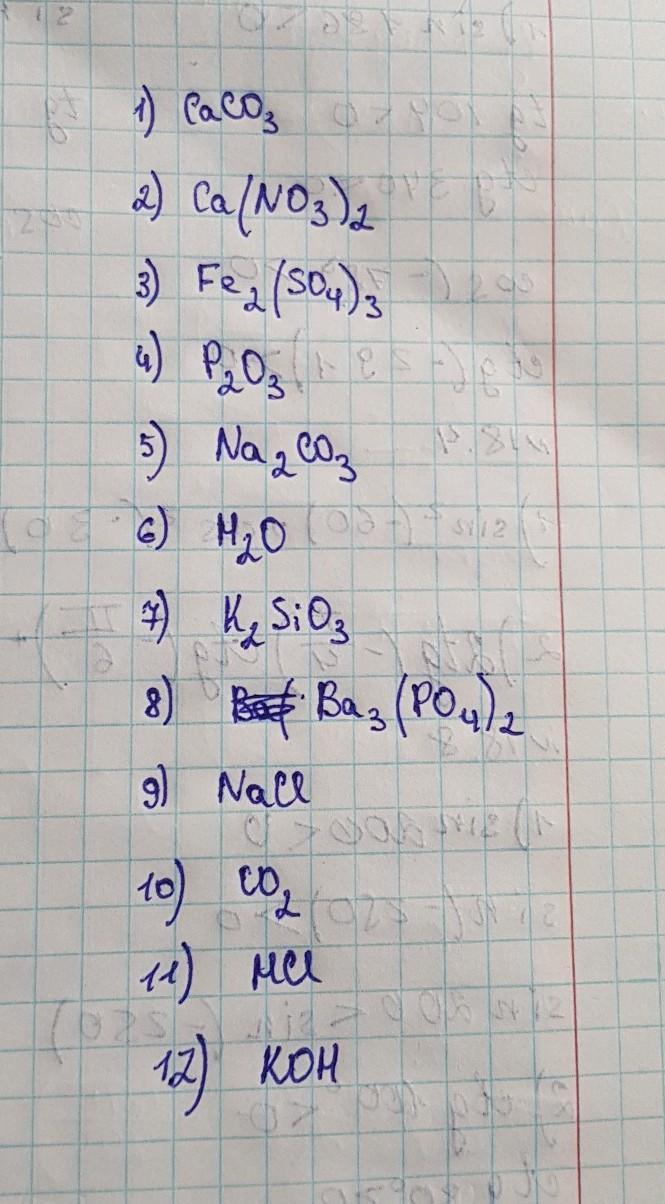 1) CaCO₃
2) Ca(NO₃)₂
3) Fe₂(SO₄)₃
4) P₂O₃
5) Na₂CO₃
6) H₂O
7) K₂SiO₃
8) Ba₃(PO₄)₂
9) NaCl
10) CO₂
11) HCl
12) KOH